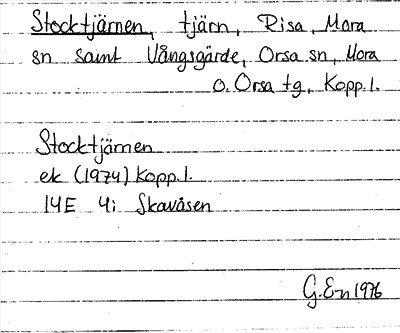 Stocktjärnen, tjärn, Risa, Mora
sn samt Vångsgärde, Orsa sn, Mora
o. Orsa tg, Kopp. l.
Stocktjärnen
ek (1974) Kopp. l.
14E 4i Skavåsen
G. En 1976